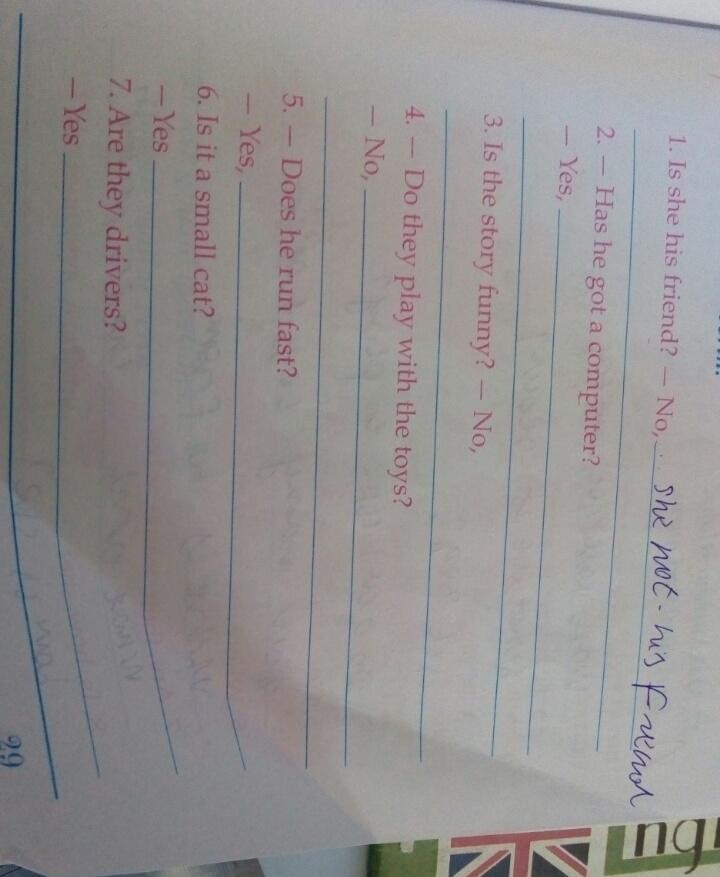 1. Is she his friend? – No, she not his friend
2. – Has he got a computer?
– Yes,
3. Is the story funny? – No,
4. – Do they play with the toys?
– No,
5. – Does he run fast?
– Yes,
6. Is it a small cat?
– Yes
7. Are they drivers?
– Yes
29
ng